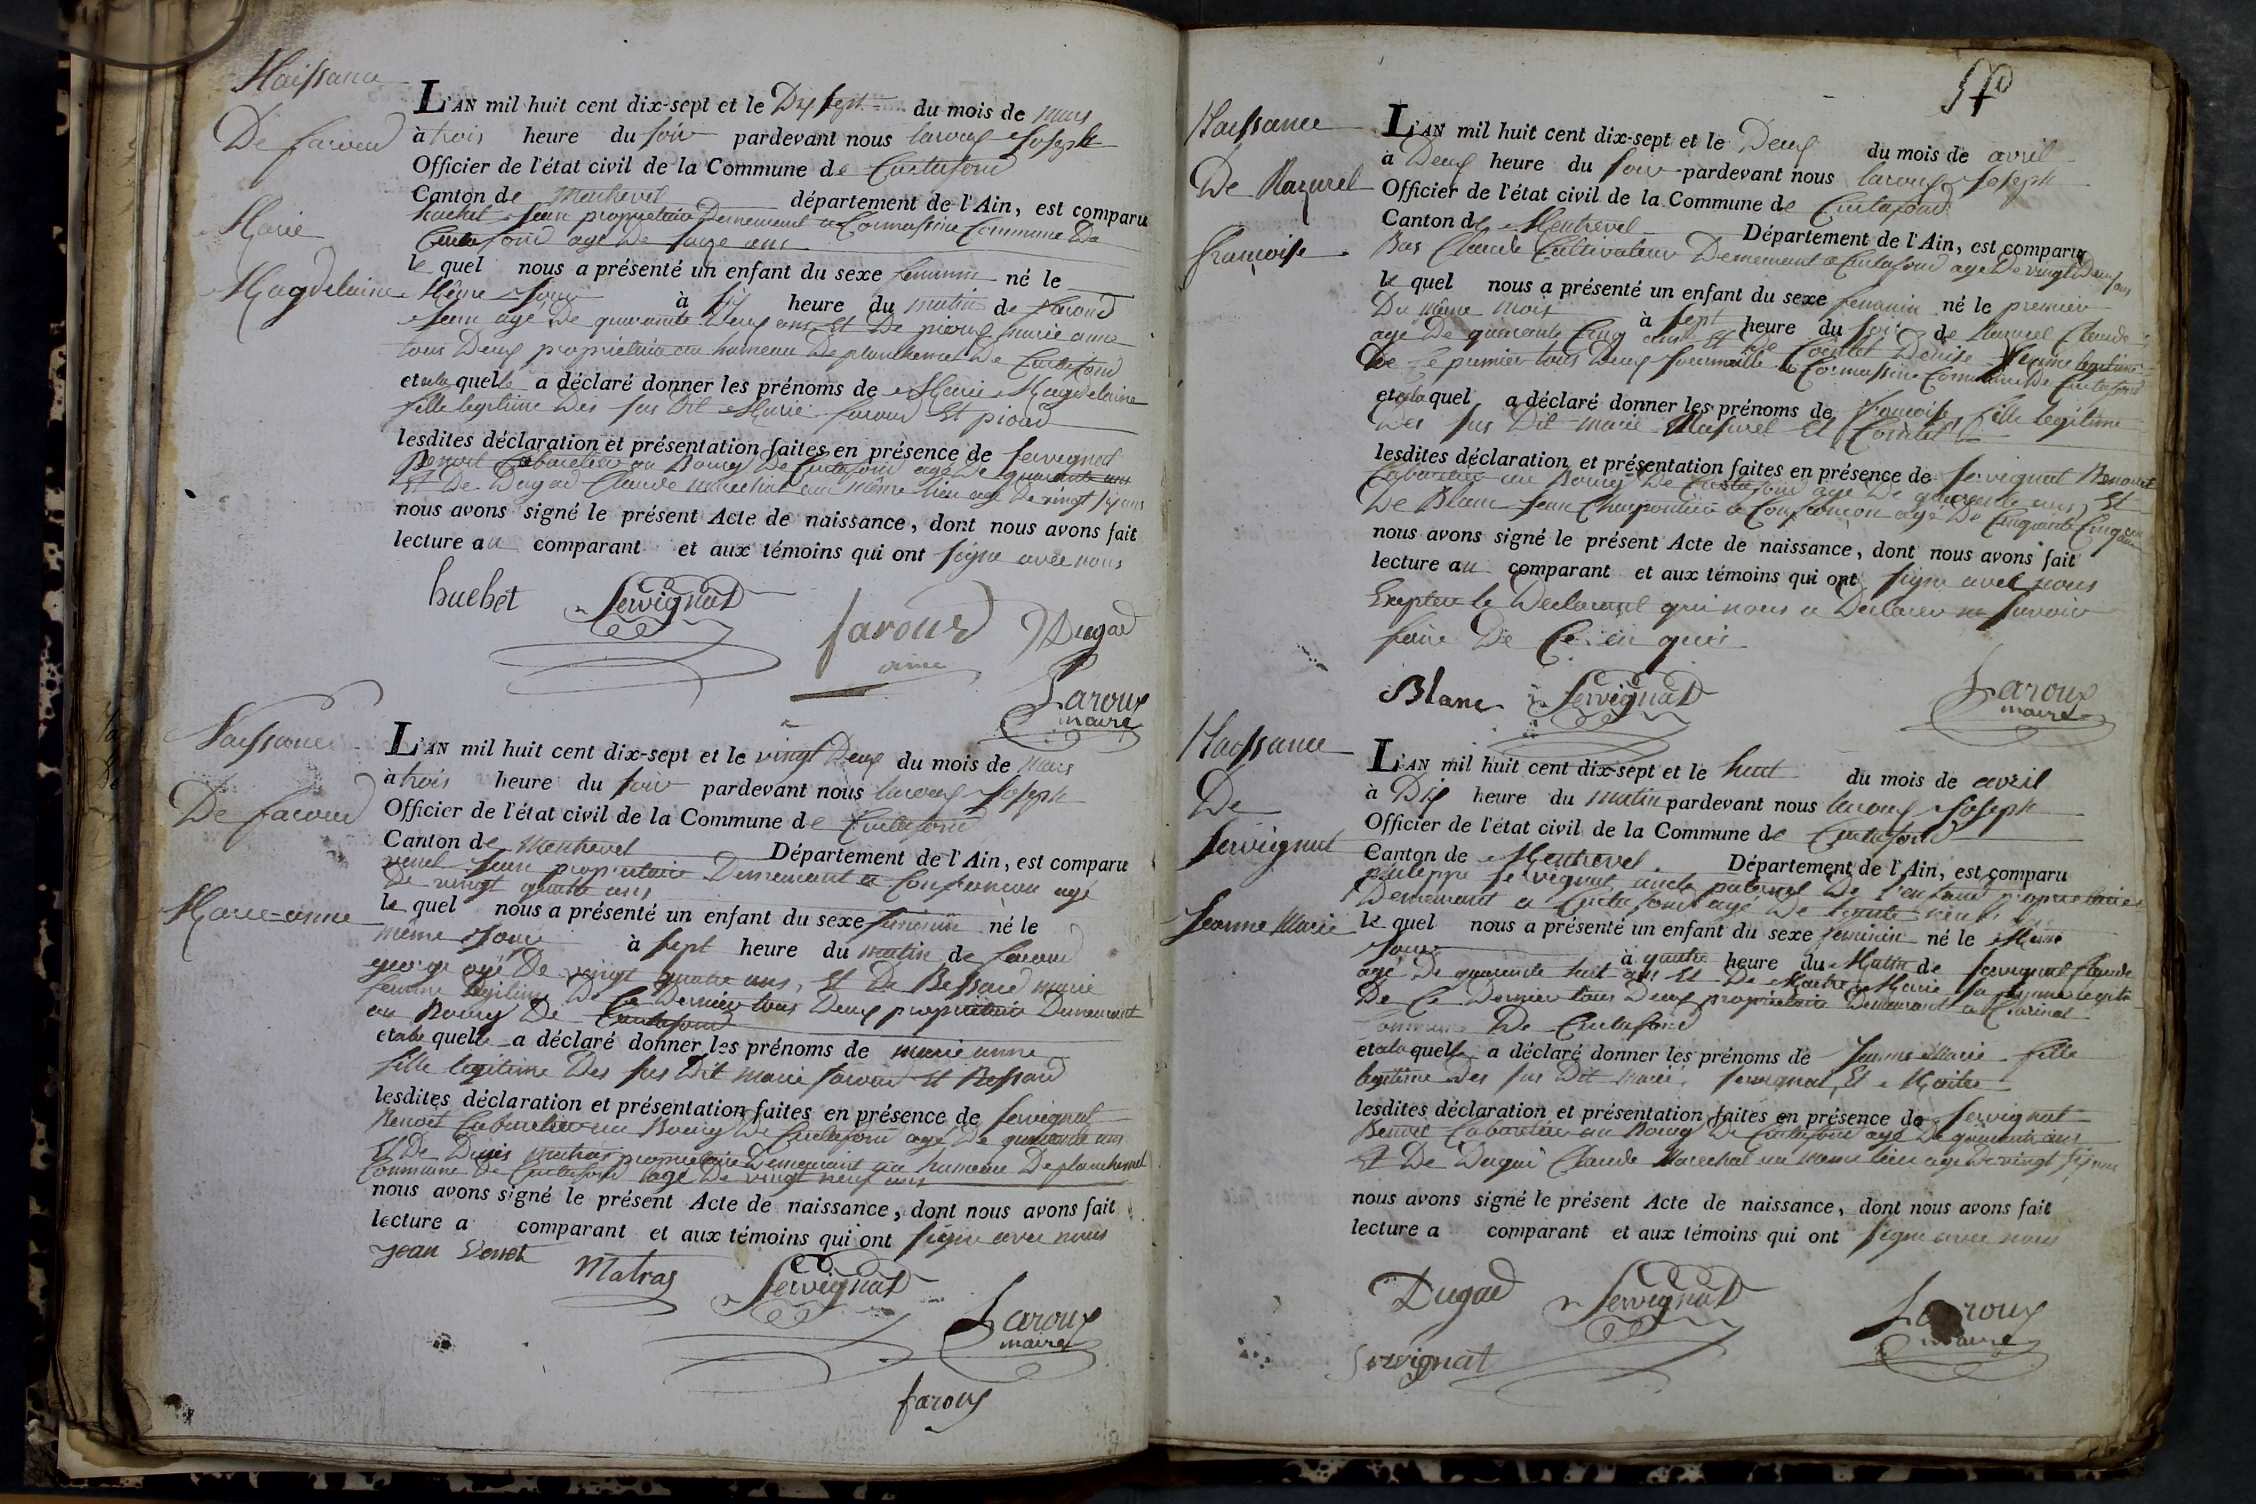 Naissance
De faroud
Marie
Magdelaine
L'AN mil huit cent dix-sept et le Dix sept du mois de mars
à trois heure du soir pardevant nous laroux Joseph
Officier de l'état civil de la Commune de Curtafond
Canton de Montrevel département de l'Ain, est comparu
huchet Jean proprietaire Demeurant a Cormassine Commune De
Curtafond agé De ans
le quel nous a présenté un enfant du sexe feminin né le
Même Jour à six heure du matin de faroud
Jean agé De quarante Deux ans Et De pioud marie anne
tous Deux proprietaire au hameau De planchemel De Curtafond
et a la quelle a déclaré donner les prénoms de Marie Magdelaine
fille legitime Des sus Dit Marié faroud Et pioud
lesdites déclaration et présentation faites en présence de servignat
Benoit Cabaretier au Bourg De Curtafond agé De quarante ans
Et De Dugad Claude marechal au même lieu agé De vingt six ans
nous avons signé le présent Acte de naissance, dont nous avons fait
lecture au comparant et aux témoins qui ont signé avec nous
huchet Servignat faroud Dugad
Laroux
maire
Naissance
De faroud
Marie-anne
L'AN mil huit cent dix-sept et le vingt Deux du mois de mars
à trois heure du soir pardevant nous laroux Joseph
Officier de l'état civil de la Commune de Curtafond
Canton de Montrevel Département de l'Ain, est comparu
venet Jean proprietaire Demeurant a Confrançon agé
De vingt quatre ans
le quel nous a présenté un enfant du sexe feminin né le
même Jour à sept heure du matin de faroud
george agé De vingt quatre ans, Et De Bessard marie
femme legitime De Ce Dernier tous Deux proprietaire Demeurant
au Bourg De Curtafond
et a la quelle a déclaré donner les prénoms de marie anne
fille legitime Des sus Dit marié faroud Et Bessard
lesdites déclaration et présentation faites en présence de servignat
Benoit Cabaretier au Bourg De Curtafond agé De quarante ans
Et De Denis matras proprietaire Demeurant au hameau De planchemel
Commune De Curtafond agé De vingt neuf ans
nous avons signé le présent Acte de naissance, dont nous avons fait
lecture a comparant et aux témoins qui ont signé avec nous
Jean Venet
Matras Servignat
Laroux
maire
faroux
Naissance
De Mazurel
françoise
L'AN mil huit cent dix-sept et le Deux du mois de avril
à Deux heure du soir pardevant nous laroux Joseph
Officier de l'état civil de la Commune de Curtafond
Canton de Montrevel Département de l'Ain, est comparu
Bas Claude Cultivateur Demeurant a Curtafond agé De vingt Deux ans
le quel nous a présenté un enfant du sexe feminin né le premier
Du même mois à sept heure du soir de Mazurel Claude
agé De quarante Cinq ans Et De Cointet Denise femme legitime
De Ce premier tous Deux a Cormassine Commune De Curtafond
et a la quel a déclaré donner les prénoms de françoise fille legitime
Des sus Dit marié Mazurel Et Cointet
lesdites déclaration et présentation faites en présence de servignat Benoit
Cabaretier au Bourg De Curtafond agé De quarante ans, Et
De Blanc Jean Charpentier a Confrançon agé De Cinquante Cinq ans
nous avons signé le présent Acte de naissance, dont nous avons fait
lecture au comparant et aux témoins qui ont signé avec nous
Excepter le Declarant qui nous a Declarer ne savoir
faire De Ce en quis
Blanc Servignat Laroux
maire
Naissance
De
servignat
Jeanne Marie
L'AN mil huit cent dix-sept et le huit du mois de avril
à Dix heure du matin pardevant nous laroux Joseph
Officier de l'état civil de la Commune de Curtafond
Canton de Montrevel Département de l'Ain, est comparu
philippe servignat oncle paternel De l'enfant proprietaire
Demeurant a Curtafond agé De trente
le quel nous a présenté un enfant du sexe feminin né le Même
Jour à quatre heure du Matin de servignat Claude
agé De quarante huit ans Et De Maitre Marie sa femme legitime
De Ce Dernier tous Deux proprietaire Demeurant a
Commune De Curtafond
et a la quelle a déclaré donner les prénoms de Jeanne Marie fille
legitime Des sus Dit marié servignat Et Maitre
lesdites déclaration et présentation faites en présence de servignat
Benoit Cabaretier au Bourg De Curtafond agé De quarante ans
Et De Dugad Claude Marechal au même lieu agé De vingt six ans
nous avons signé le présent Acte de naissance, dont nous avons fait
lecture a comparant et aux témoins qui ont signé avec nous
Dugad Servignat Laroux
maire
Servignat